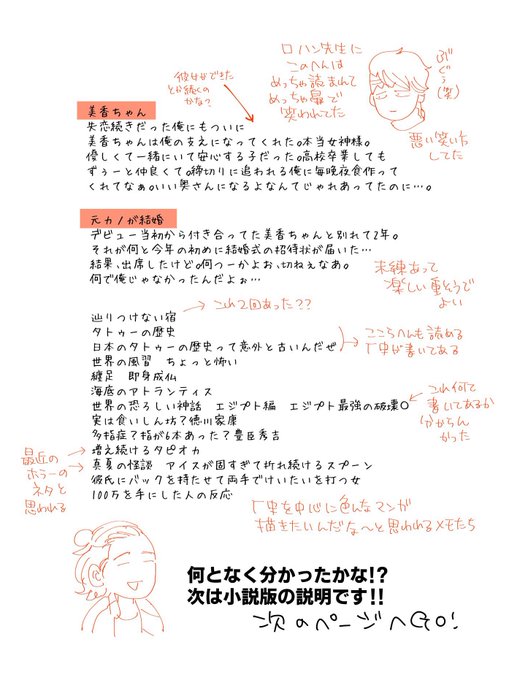 ロハン先生に
このへんは
めっちゃ読まれて
めっちゃ鼻で
笑われてた
ぶぐぅ(笑)
悪い笑い方
してた
彼女ができた
とか続くの
かな?
美香ちゃん
失恋続きだった俺にもついに
美香ちゃんは俺の支えになってくれた。本当女神様。
優しくて一緒にいて安心する子だった。高校卒業しても
ずぅーと仲良くて。締切りに追われる俺に毎晩夜食作って
くれてなぁ。いい奥さんになるよなんてじゃれあってたのに…。
元カノが結婚
デビュー当初から付き合ってた美香ちゃんと別れて2年。
それが何と今年の初めに結婚式の招待状が届いた…
結果、出席したけど。何つーかよぉ、切ねぇなあ。
何で俺じゃなかったんだよぉ…
未練あって
楽しい重そうで
よい
これ2回あった??
辿りつけない宿
タトゥーの歴史
日本のタトゥーの歴史って意外と古いんだぜ
世界の風習 ちょっと怖い
纏足 即身成仏
海底のアトランティス
世界の恐ろしい神話 エジプト編 エジプト最強の破壊○
実は食いしん坊?徳川家康
多指症?指が6本あった?豊臣秀吉
増え続けるタピオカ
真夏の怪談 アイスが固すぎて折れ続けるスプーン
彼氏にバックを持たせて両手でけいたいを打つ女
100万を手にした人の反応
ここらへんも読める
厂史が書いてある
これ何て
書いてあるか
分からん
かった
最近の
ホラーの
ネタと
思われる
厂史を中心に色んなマンガ
描きたいんだな〜と思われるメモたち
何となく分かったかな!?
次は小説版の説明です!!
次のページへGO!